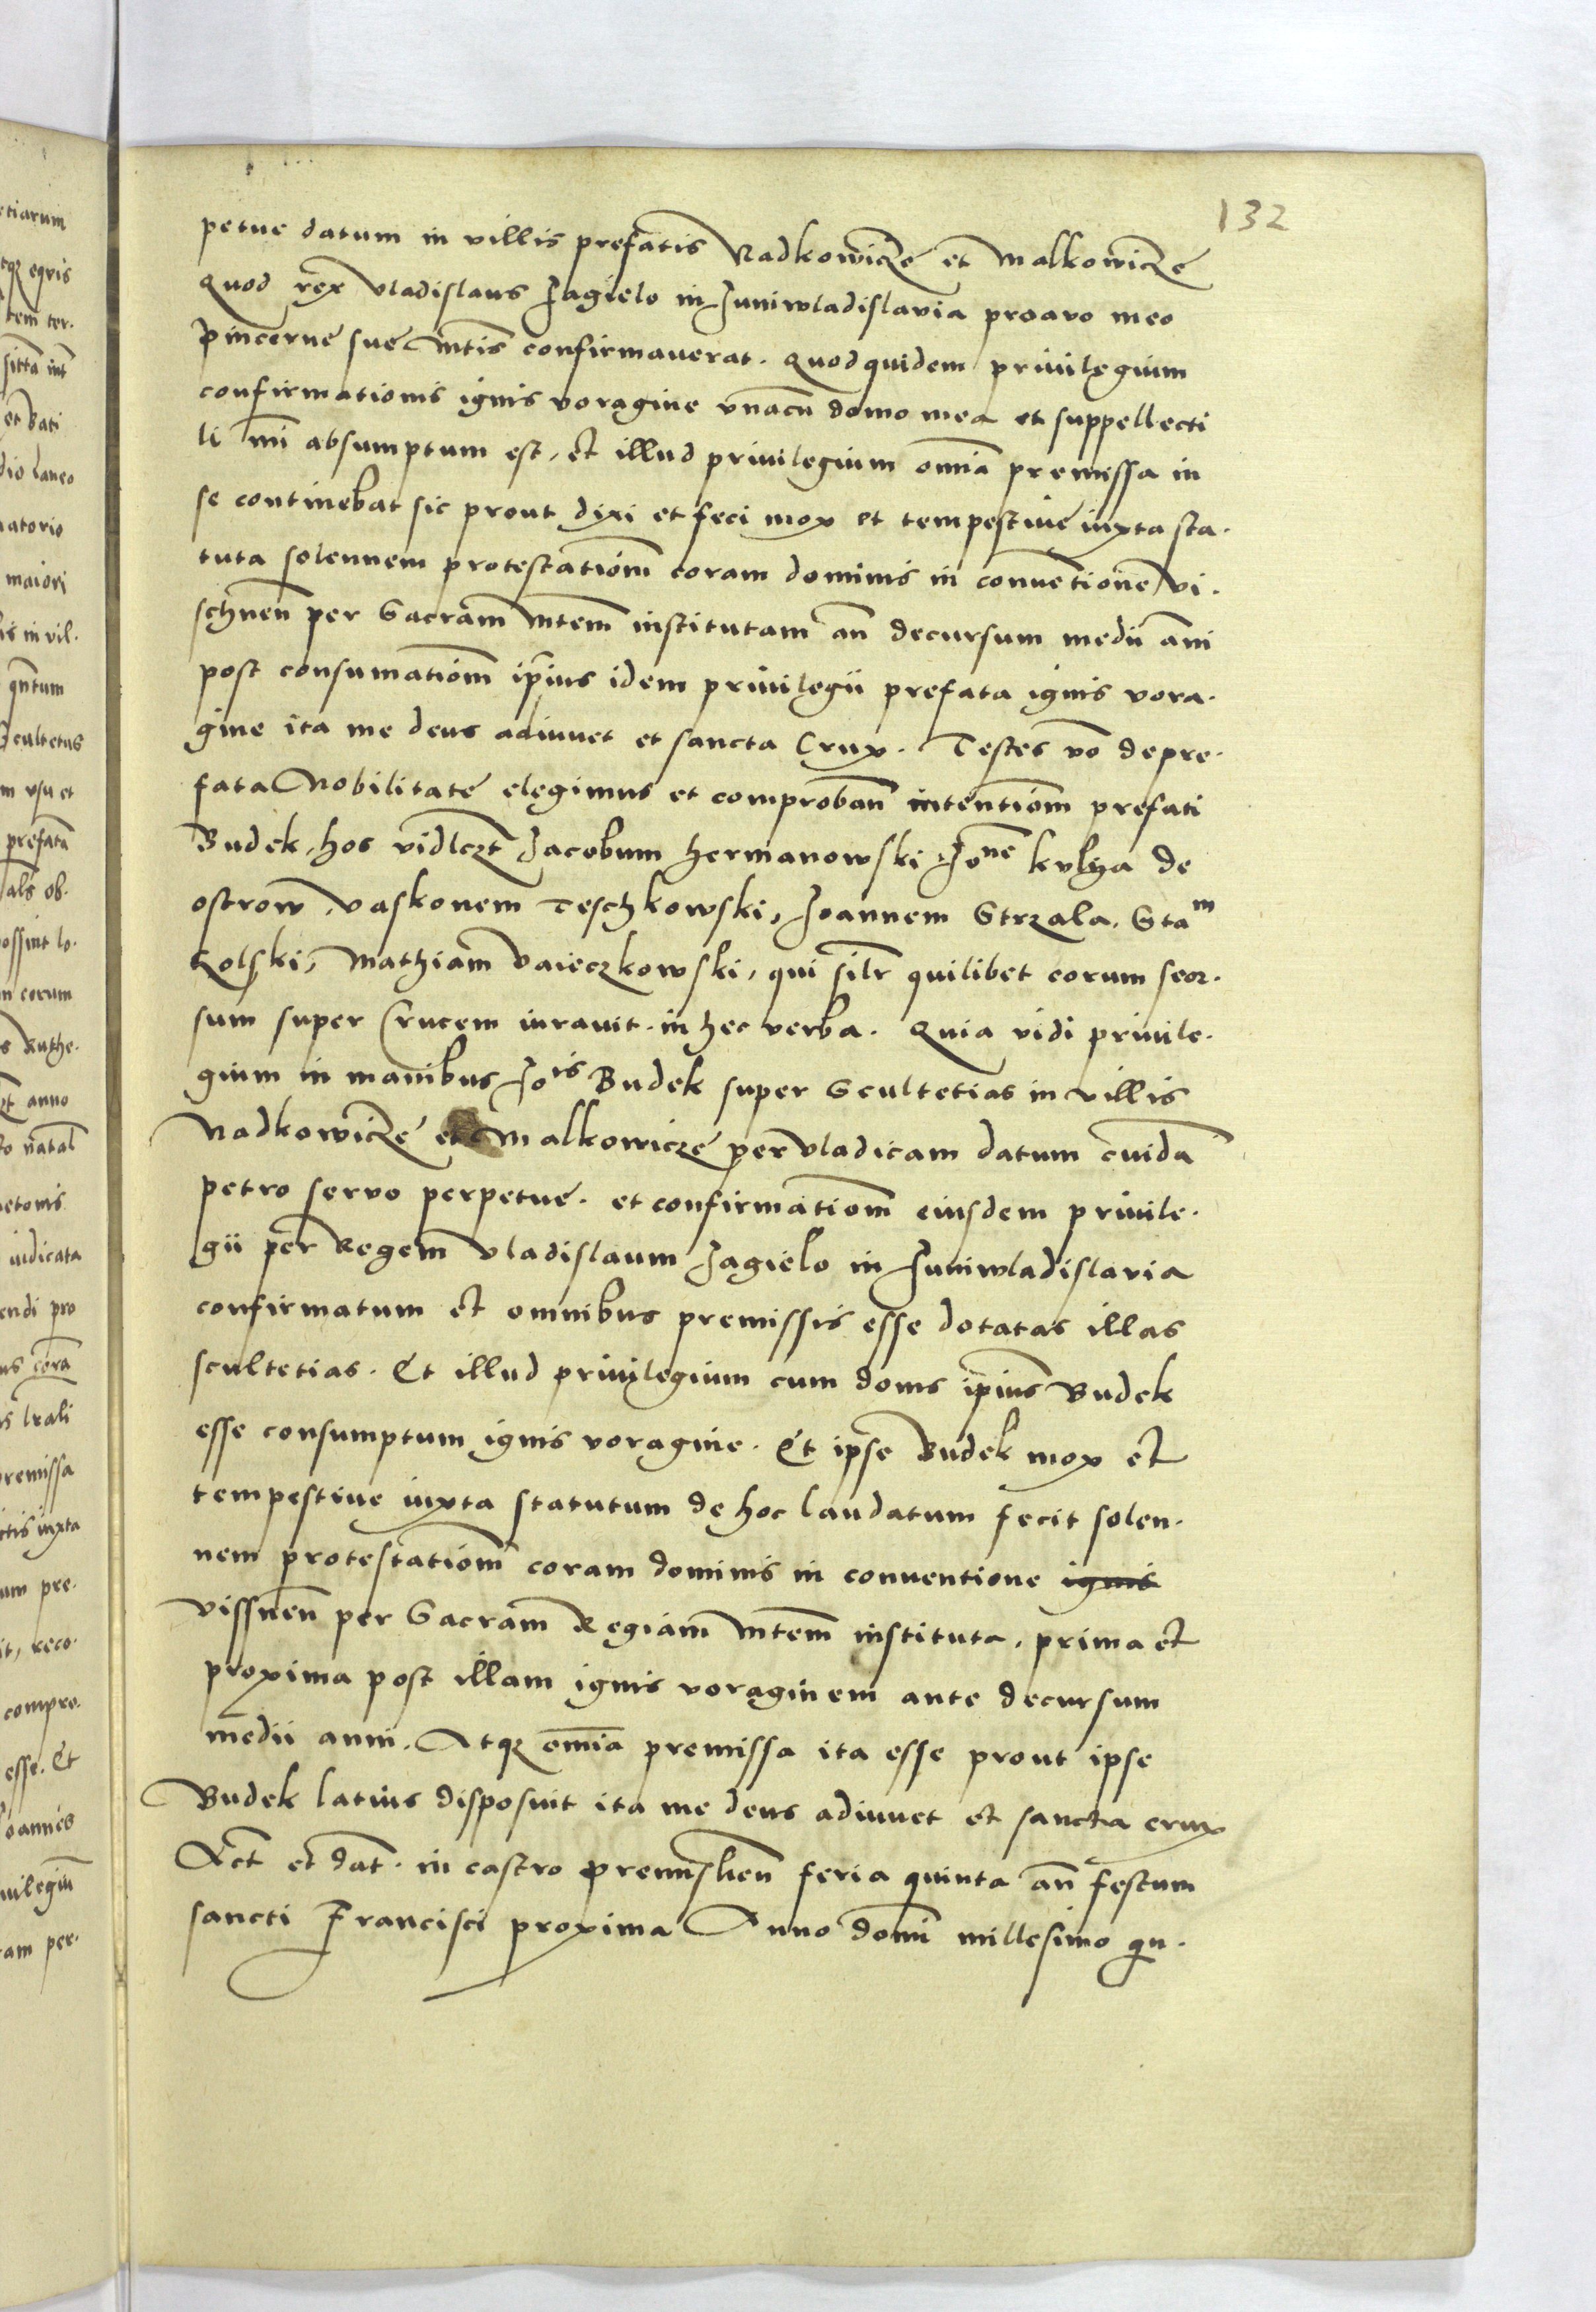 132
petue datum in villis prefatis Nadkowicze et Malkowicze
Quod rex Vladislaus Jagielo in Juniwladislavia proavo meo
pincerne sue Mtis confirmauerat. Quod quidem priuilegium
confirmationis ignis voragine vnacu domo mea et suppellecti
li mi absumptum est, et illud priuilegium omia premissa in
se continebat sic prout dixi et feci mox et tempestiue iuxta sta.
tuta solennem protestationm coram dominis in conuetione Vi.
schnen per Sacram Mtem institutam an decursum medii ani
post consumationm ipius idem priuilegii prefata ignis vora.
gine ita me deus adiuuet et sancta Crux. Testes vo de pre.
fata Nobilitate elegimus et comproban intentionm prefati
Budek, hos vidlczt Jacobum hermanowski Jone kulha de
ostrow, Vaskonem Teschkowski, Joannem Strzala, Stam
Rolski, Mathiam Vaieczkowski, qui silr quilibet eorum seor.
sum super Crucem iurauit. in hec verba. Quia vidi priuile.
gium in manibus Jois Budek super Scultetias in villis
Nadkowicze et Malkowicze per Vladicam datum cuida
petro seruo perpetue. et confirmationm eiusdem priuile.
gii per Regem Vladislaum Jagielo in Juniwladislavia
confirmatum et omnibus premissis esse dotatas illas
scultetias. Et illud priuilegium cum doms ipius Budek
esse consumptum ignis voragine. Et ipse Budek mox et
tempestiue iuxta statutum de hoc laudatum fecit solen.
nem protestationm coram dominis in conuentione ignis
vissnen per Sacram Regiam Mtem instituta. prima et
proxima post illam ignis voraginem ante decursum
medii anni. Atqz omia premissa ita esse prout ipse
Budek latius disposuit ita me deus adiuuet et sancta crux
Act et dat. in castro premislien feria quinta an festum
sancti Francisci proxima Anno domi millesimo qu.